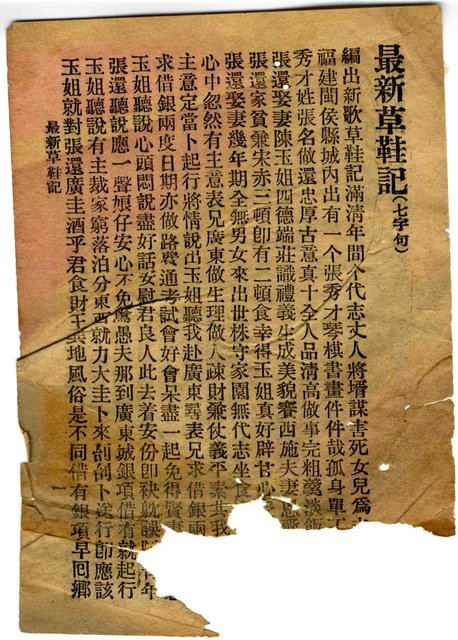 最新草鞋記(七字句)
編出新歌草鞋記滿清年間个代志丈人將壻謀害死女兒爲
福建閩侯縣城內出有一个張秀才琴棋書畫件件哉孤身單
秀才姓張名做還忠厚古意真十全人品清高做事完粗羹淡飯
張還娶妻陳玉姐四德端莊識禮義生成美貌賽西施夫妻恩
張還家貧兼宋赤二頓卽有二頓食幸得玉姐真好辟甘心
張還娶妻幾年期全無男女來出世株守家園無代志坐食
心中忽然有主意表兄廣東做生理做人疎財兼仗義平素共我
主意定當卜起行將情說出玉姐聽我赴廣東尋表兄求借銀兩
求借銀兩度日期亦做路費通考試會好會呆盡一起免得賢妻
玉姐聽說心頭悶說盡好話安慰君良人此去着安份卽袂躭誤年
張還聽說應一聲仔安心不免驚愚夫那到廣東城銀項借有就起行
玉姐聽說有主裁家窮落泊分東西就力大圭卜來刣刣卜送行卽應該
玉姐就對張還廣圭酒乎君食財王異地風俗是不同借有銀項早囘鄉
最新草鞋記
一